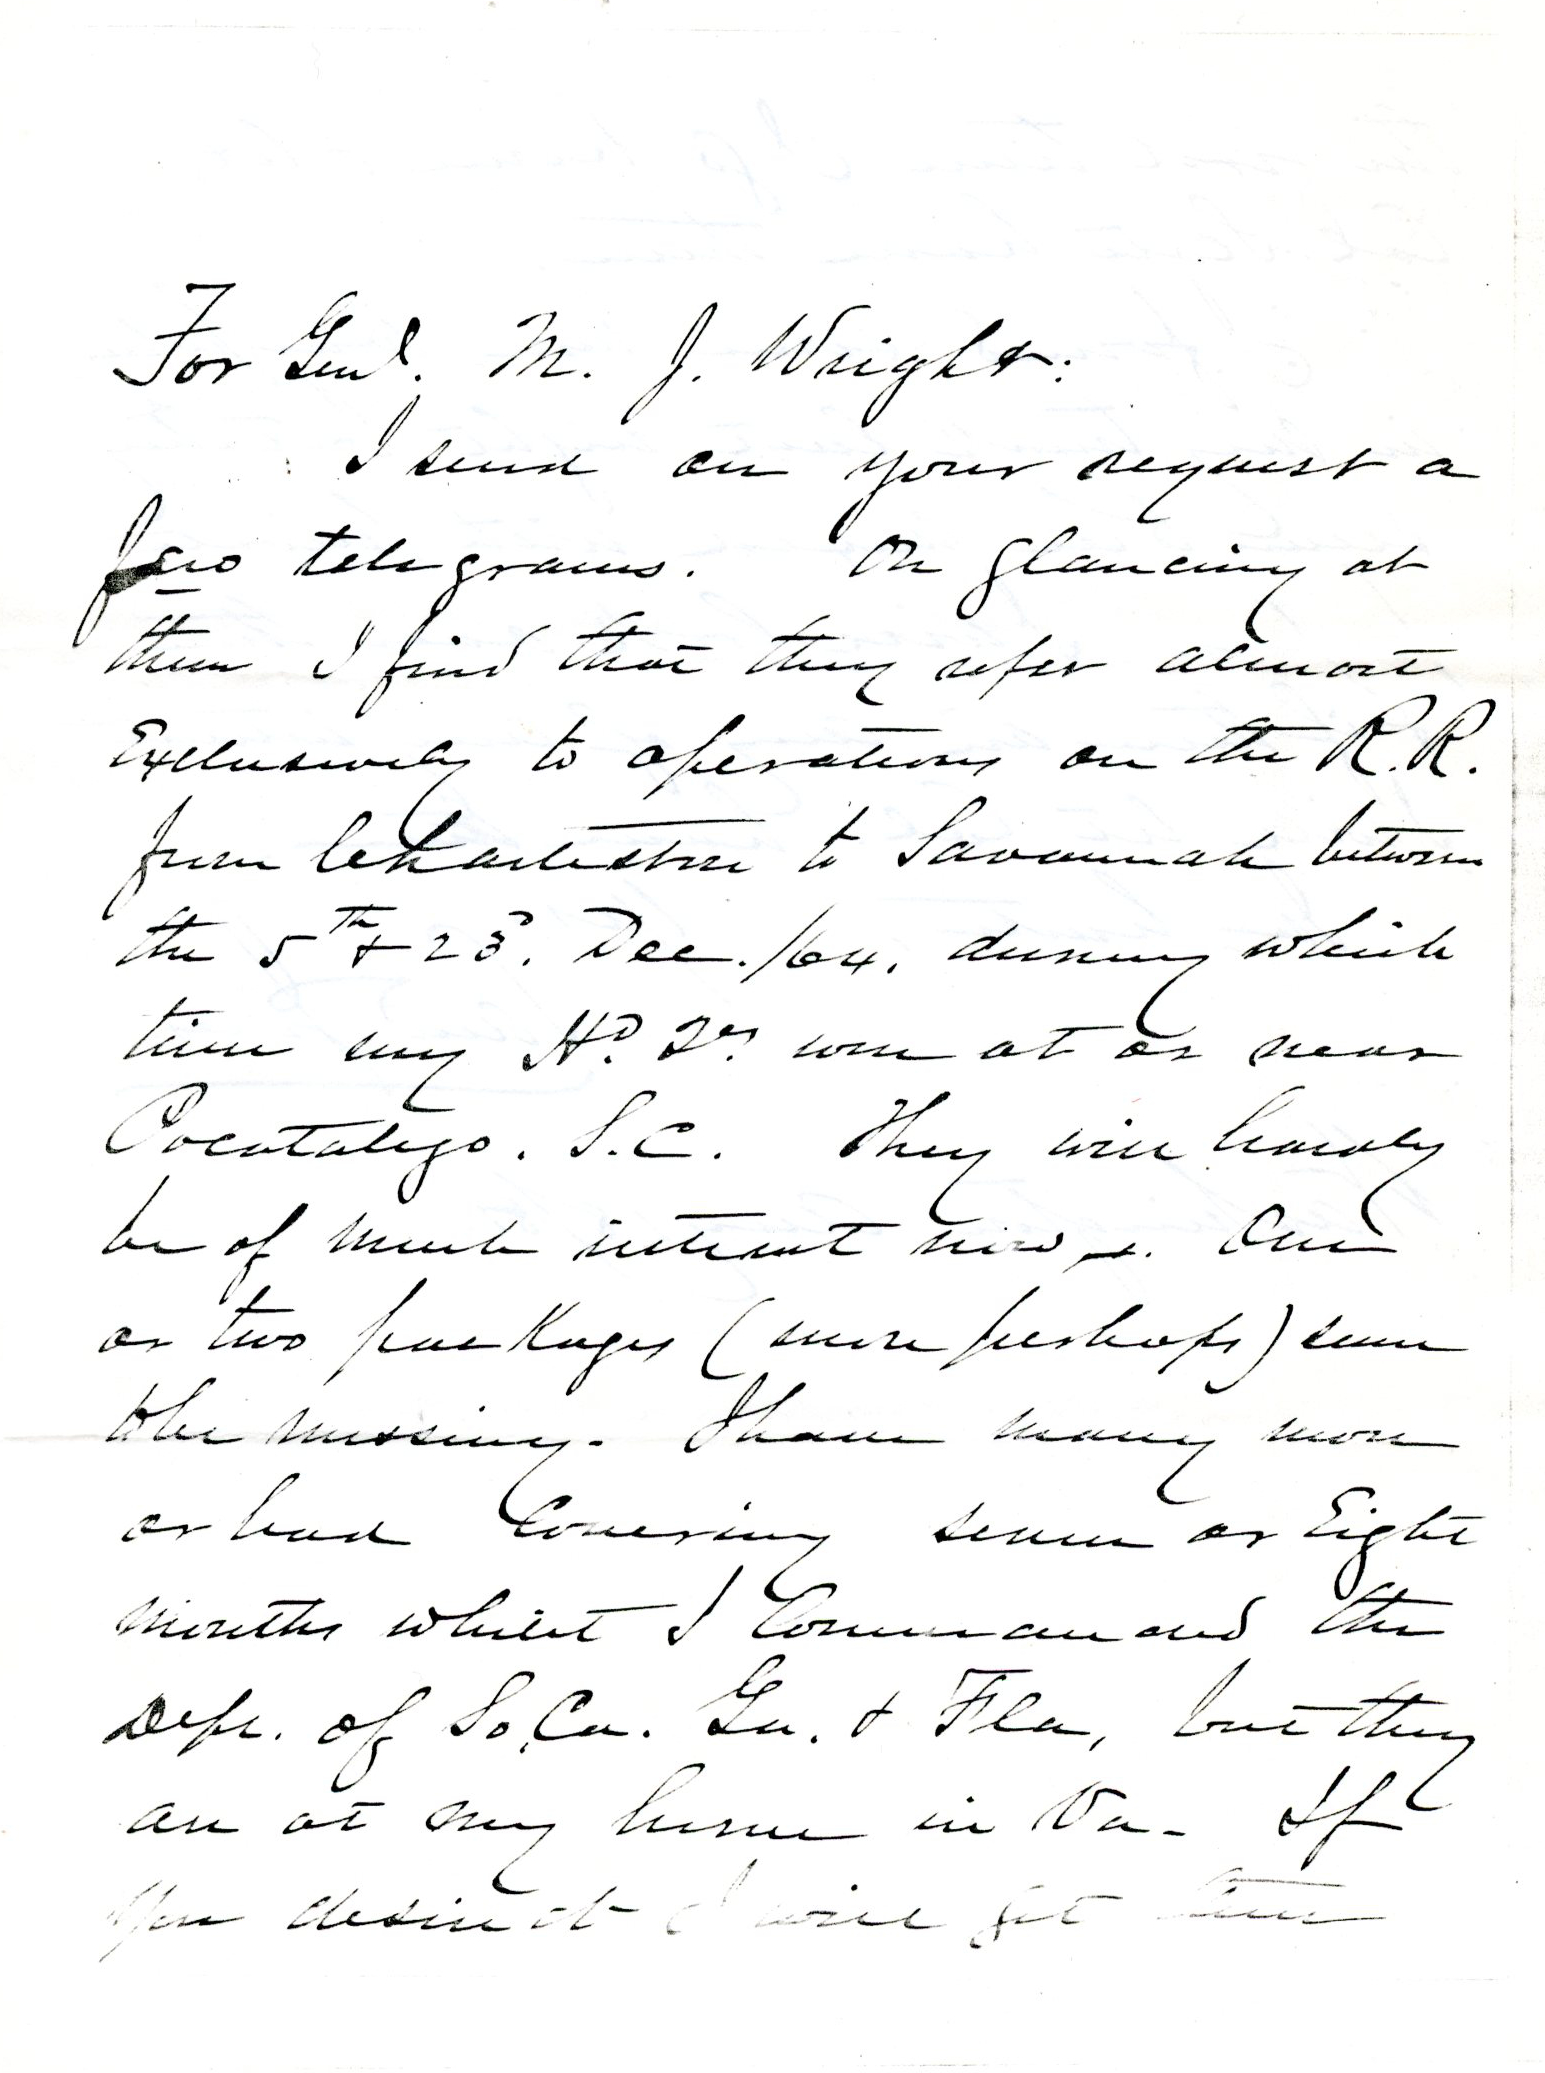 For Genl. M. J. Wright:
I send on your request a
few telegrams. On glancing at
them I find that they refer almost
Exclusively to operations on the R.R.
from Charleston to Savannah between
the 5th & 23d. Dec./64. during which
time my Hd. Qrs. were at or near
Pocotaligo. S.C. They will hardly
be of much interest now. One
or two packages (more perhaps) seem
to be missing. I have many more
or had Covering seven or Eight
months whilst I Commanded the
Dept. of So. Ca. Ga. & Fla, but they
are at my home in Va- If
you desire it I will get them